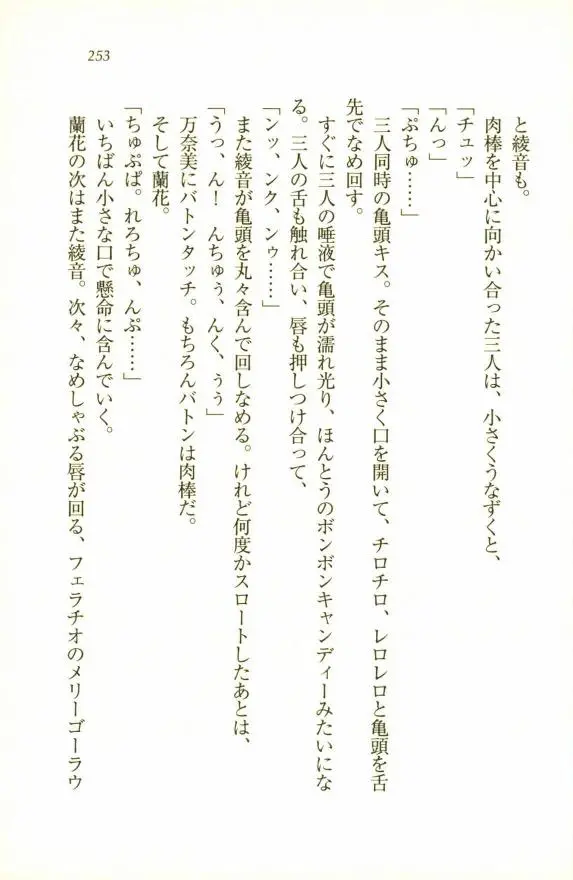 253
と綾音も。
肉棒を中心に向かい合った三人は、小さくうなずくと、
「チュッ」
「んっ」
「ぷちゅ……」
三人同時の亀頭キス。そのまま小さく口を開いて、チロチロ、レロレロと亀頭を舌
先でなめ回す。
すぐに三人の唾液で亀頭が濡れ光り、ほんとうのボンボンキャンディーみたいにな
る。三人の舌も触れ合い、唇も押しつけ合って、
「ンッ、ンク、ンゥ……」
また綾音が亀頭を丸々含んで回しなめる。けれど何度かスロートしたあとは、
「うっ、ん！　んちゅぅ、んく、うぅ」
万奈美にバトンタッチ。もちろんバトンは肉棒だ。
そして蘭花。
「ちゅぷぱ。れろちゅ、んぷ……」
いちばん小さな口で懸命に含んでいく。
蘭花の次はまた綾音。次々、なめしゃぶる唇が回る、フェラチオのメリーゴーラウ